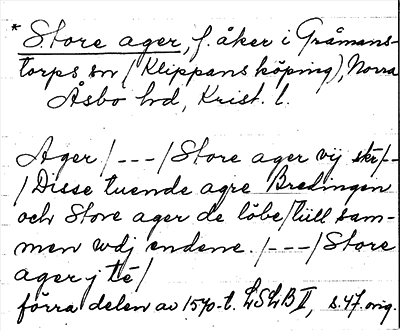 * Store ager, f. åker i Gråmans-
torps sn (Klippans köping), Norra
Åsbo hd, Krist. l.
Ager /---/ Store ager vij skr/--
/ Disse tuende agre Bredingen
och Store ager de løbe /tiill sam-
men wdj endene. /---/ Store
ager j té/
förra delen av 1570-t. LSLB II, s. 47. orig.